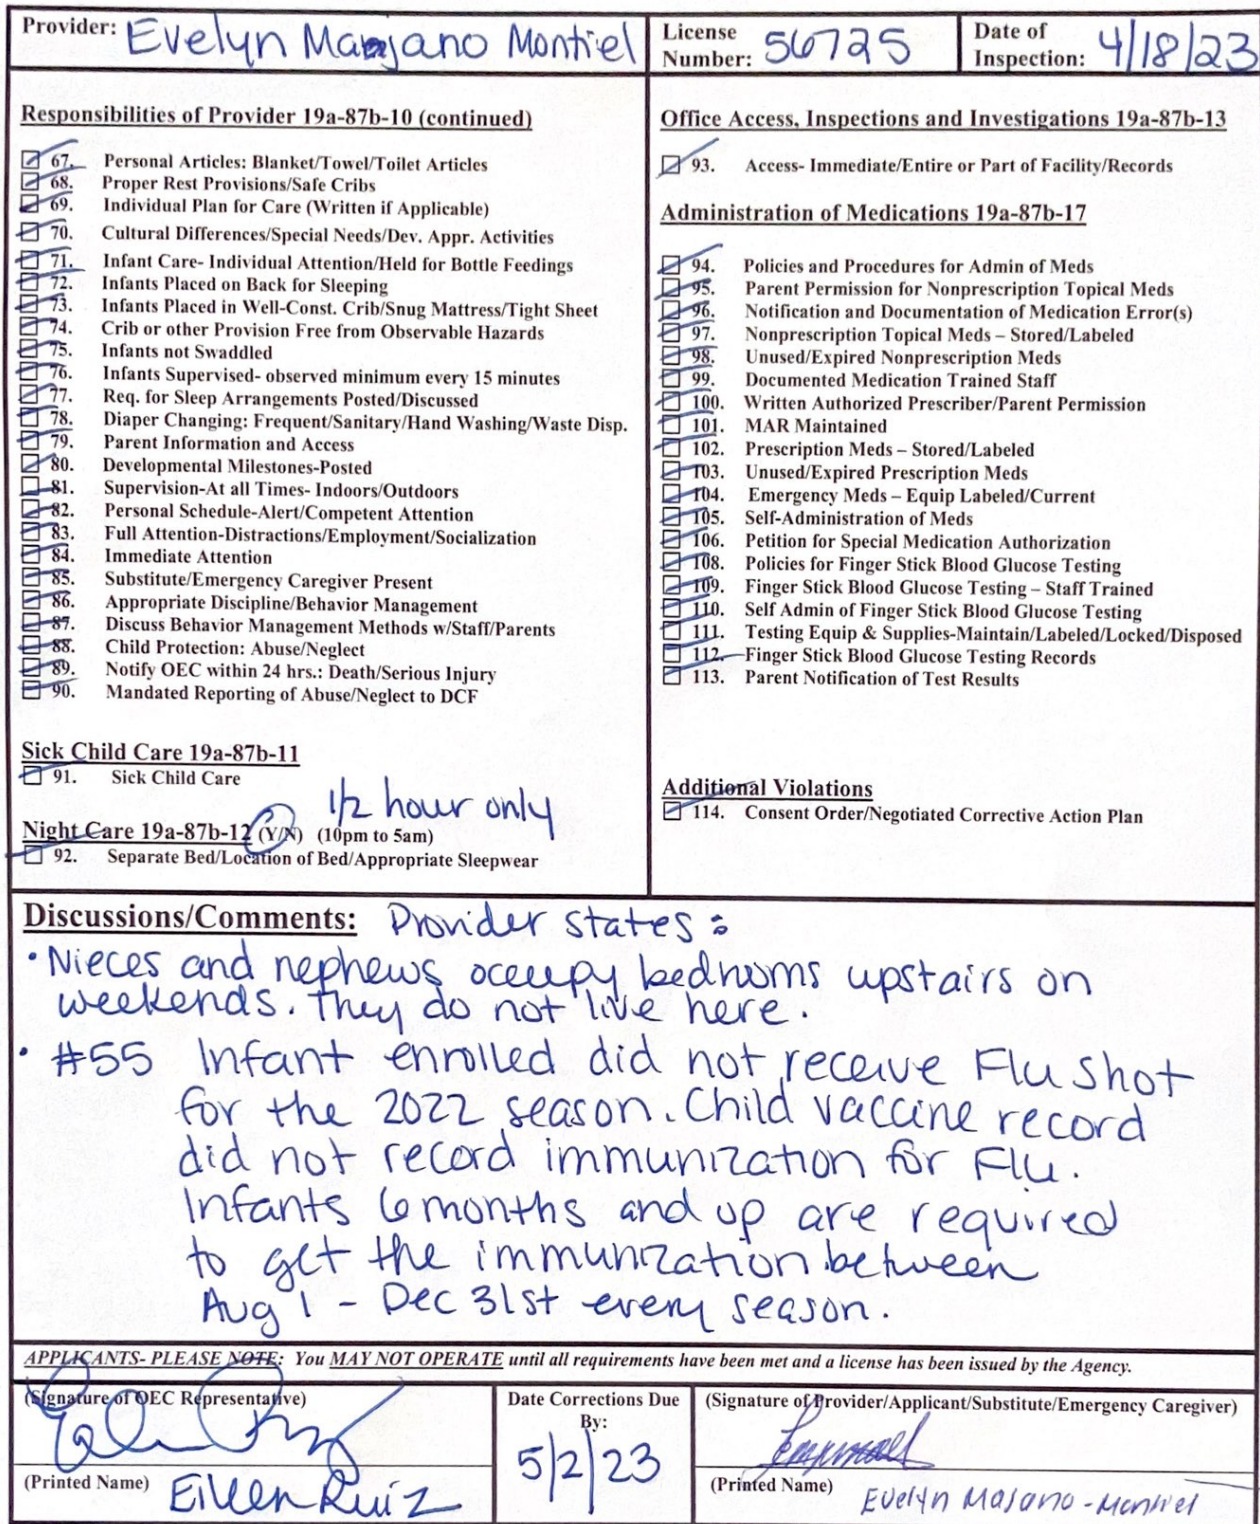 Provider: Evelyn Manjano Montiel
License Number: 56725
Date of Inspection: 4/18/23
Responsibilities of Provider 19a-87b-10 (continued)
67. Personal Articles: Blanket/Towel/Toilet Articles
68. Proper Rest Provisions/Safe Cribs
69. Individual Plan for Care (Written if Applicable)
70. Cultural Differences/Special Needs/Dev. Appr. Activities
71. Infant Care- Individual Attention/Held for Bottle Feedings
72. Infants Placed on Back for Sleeping
73. Infants Placed in Well-Const. Crib/Snug Mattress/Tight Sheet
74. Crib or other Provision Free from Observable Hazards
75. Infants not Swaddled
76. Infants Supervised- observed minimum every 15 minutes
77. Req. for Sleep Arrangements Posted/Discussed
78. Diaper Changing: Frequent/Sanitary/Hand Washing/Waste Disp.
79. Parent Information and Access
80. Developmental Milestones-Posted
81. Supervision-At all Times- Indoors/Outdoors
82. Personal Schedule-Alert/Competent Attention
83. Full Attention-Distractions/Employment/Socialization
84. Immediate Attention
85. Substitute/Emergency Caregiver Present
86. Appropriate Discipline/Behavior Management
87. Discuss Behavior Management Methods w/Staff/Parents
88. Child Protection: Abuse/Neglect
89. Notify OEC within 24 hrs.: Death/Serious Injury
90. Mandated Reporting of Abuse/Neglect to DCF
Sick Child Care 19a-87b-11
91. Sick Child Care
1/2 hour only
Night Care 19a-87b-12 (Y/N) (10pm to 5am)
92. Separate Bed/Location of Bed/Appropriate Sleepwear
Office Access, Inspections and Investigations 19a-87b-13
93. Access- Immediate/Entire or Part of Facility/Records
Administration of Medications 19a-87b-17
94. Policies and Procedures for Admin of Meds
95. Parent Permission for Nonprescription Topical Meds
96. Notification and Documentation of Medication Error(s)
97. Nonprescription Topical Meds – Stored/Labeled
98. Unused/Expired Nonprescription Meds
99. Documented Medication Trained Staff
100. Written Authorized Prescriber/Parent Permission
101. MAR Maintained
102. Prescription Meds – Stored/Labeled
103. Unused/Expired Prescription Meds
104. Emergency Meds – Equip Labeled/Current
105. Self-Administration of Meds
106. Petition for Special Medication Authorization
108. Policies for Finger Stick Blood Glucose Testing
109. Finger Stick Blood Glucose Testing – Staff Trained
110. Self Admin of Finger Stick Blood Glucose Testing
111. Testing Equip & Supplies-Maintain/Labeled/Locked/Disposed
112. Finger Stick Blood Glucose Testing Records
113. Parent Notification of Test Results
Additional Violations
114. Consent Order/Negotiated Corrective Action Plan
Discussions/Comments: Provider states:
• Nieces and nephews occupy bedrooms upstairs on
weekends. They do not live here.
• #55 Infant enrolled did not receive Flu shot
for the 2022 season. Child vaccine record
did not record immunization for Flu.
Infants 6 months and up are required
to get the immunization between
Aug 1 - Dec 31st every season.
APPLICANTS- PLEASE NOTE: You MAY NOT OPERATE until all requirements have been met and a license has been issued by the Agency.
(Signature of OEC Representative)
(Printed Name) Eileen Ruiz
Date Corrections Due
By:
5/2/23
(Signature of Provider/Applicant/Substitute/Emergency Caregiver)
(Printed Name) Evelyn Majano-Montiel